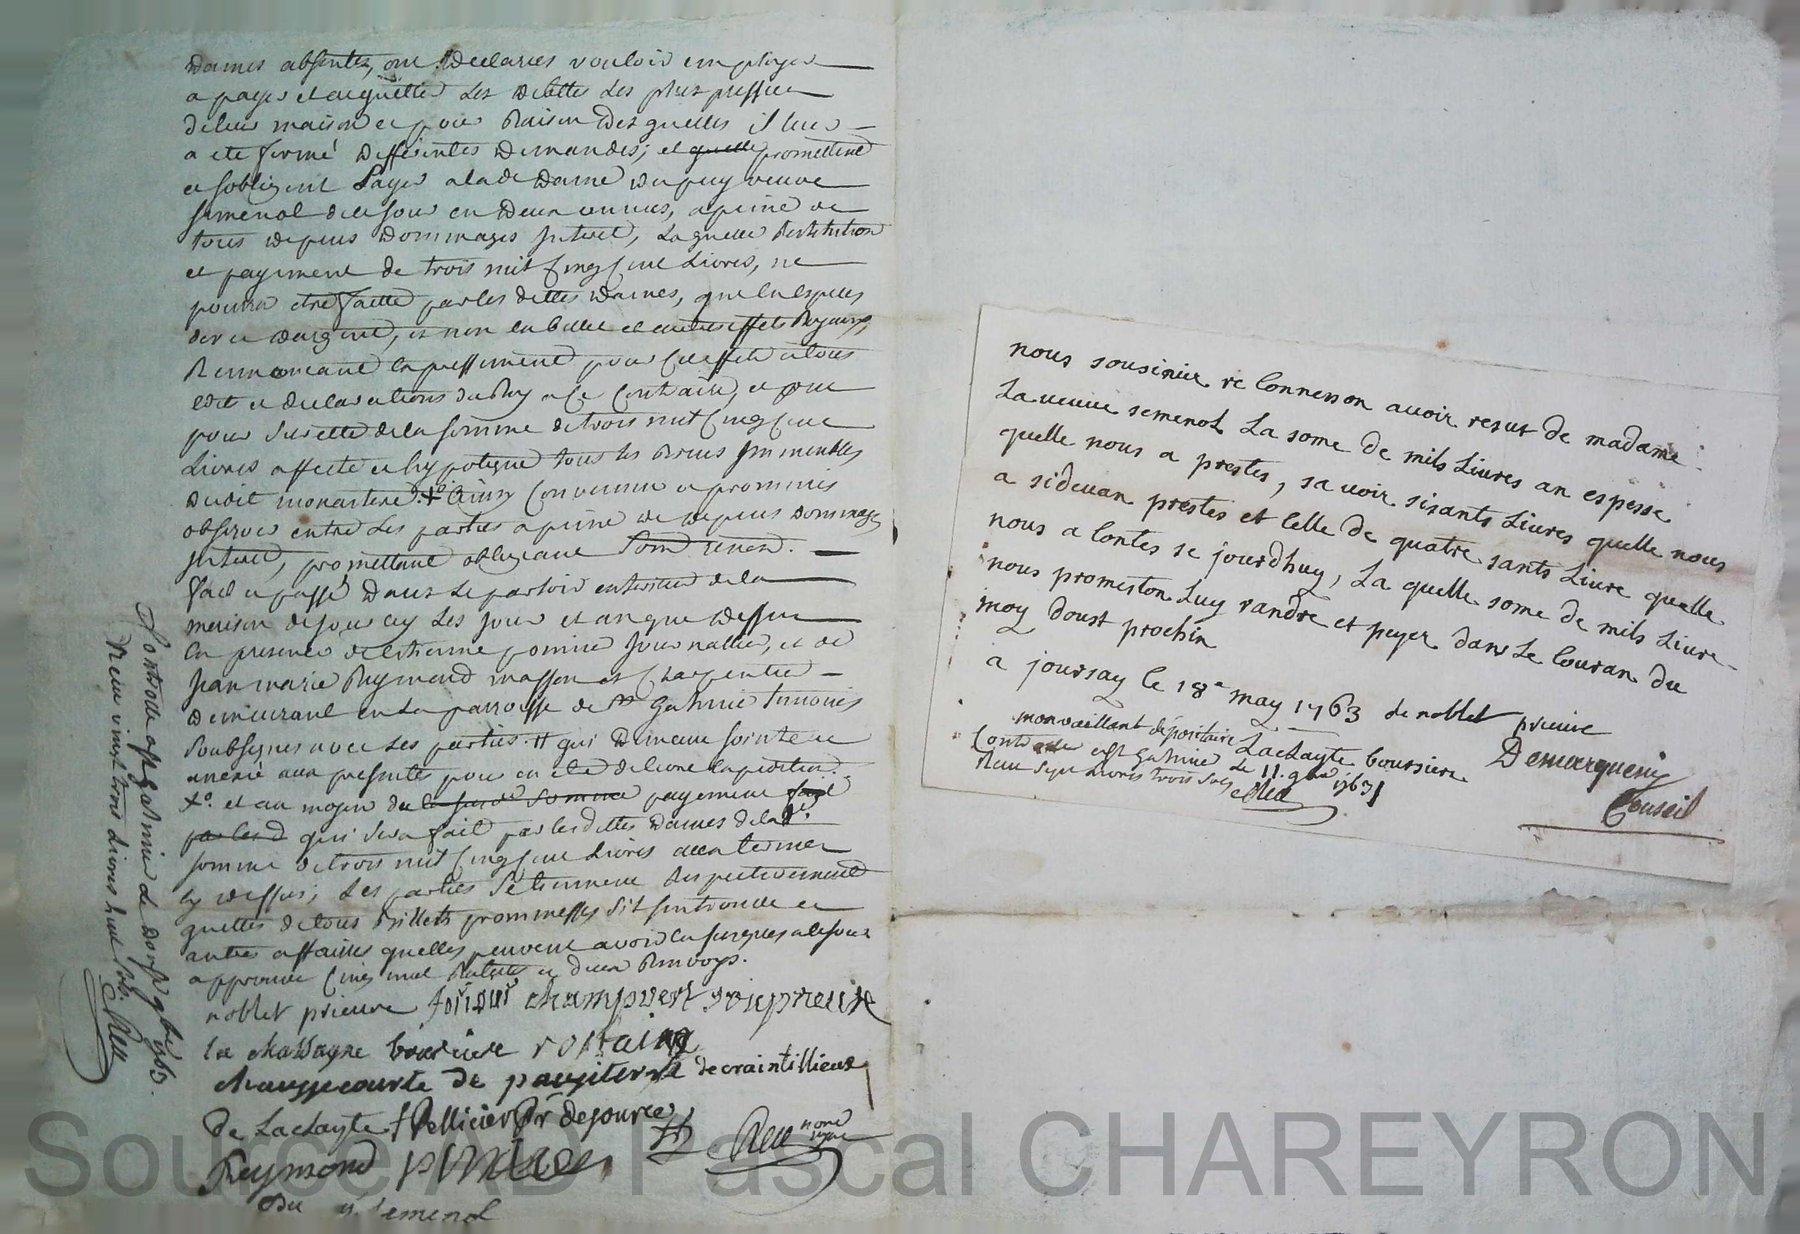 Dames absentes, ont declarées vouloir employer
a payer et acquitter les debttes les plus pressees
de leur maison et pour Raison desquelles il leur
a eté formé differentes demandes; et quelle promettent
et sobligent payer a lad. dame Dupuy veuve
semenol dicy jour en deux annees, a peine de
tous depens dommages Interet, laquelle Restitution
et payement de trois mil cinq cent Livres, ne
pourra etre faitte par les dittes dames, quen especes
dor et dargent, et non en billet et autres effets Royaux,
Renonceant expressement pour cet effet a tous
edit et declarations du Roy a ce contraire, et ont
pour sureté de la somme de trois mil cinq cent
Livres affecté et hypotequé tous les biens Immeubles
dudit monastere. +o Ainsy convenu et promis
observer entre les parties a peine de depens dommages
Interet, promettant obligeant soum. renon.
fait et passé dans le parloir exterieur de la
maison de jourcey les jour et an que dessus
en presence de Estienne pomier journallier, et de
Jean marie Reymond masson et charpentier
demeurant en la parroisse de St Galmier temoins
soubsignes avec les parties. qui demeure jointe et
anexé aux presentes pour en etre delivré expedition.
+o. et au moyen du la susd. somme payement fait
par lesd qui sera fait par les dittes dames de lad.
somme de trois mil cinq cent Livres au terme
cy dessus, les parties se tiennent Respectivement
quittes de tous Billets promesses sil sen trouve et
autres affaires quelles peuvent avoir eu jusques a ce jour
approuvé cinq mot Rayés et deux Renvoys.
noblet prieure champvert souprieure
la chassagne boursiere rostaing
chaugecourte de paugiterre decraintilleux
De Laclayte f Pellicier Pr dejourcey
Reymond pomier Réa nore
Du semenol
Controlé a St Galmier le douse 9bre 1763.
Receu vingt trois Livres huit sols. Réa
nous sousiniee re connesson auoir resut de madame
La ueuue semenol La some de mils Liures an espesse
quelle nous a prestes, sa uoir sisants Liures quelle nous
a sideuan prestes et Celle de quatre sants Liure quelle
nous a Contes se jourdhuy, La quelle some de mils Liure
nous promeston Luy randre et peyer dans Le Couran du
moy doust prochin
a joursay le 18e may 1763 de noblet prieure
monvaillant depositaire Laclayte boursiere Demarquerie
Controlé a St Galmier le 11. 9bre 1763
Receu sept Livres trois sols Réa
Conseil
Source AD Pascal CHAREYRON